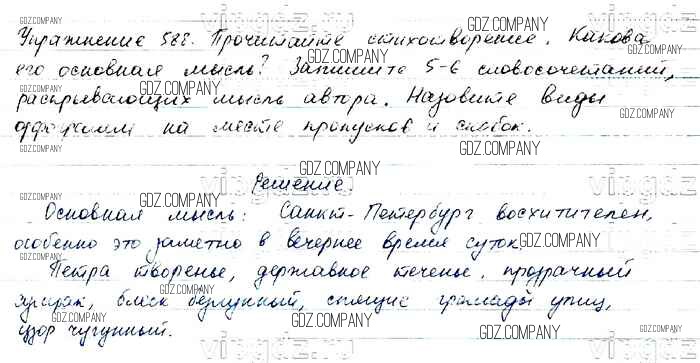 Упражнение 588. Прочитайте стихотворение. Какова
его основная мысль? Запишите 5-6 словосочетаний,
раскрывающих мысль автора. Назовите виды
орфограмм на месте пропусков и скобок.
Решение.
Основная мысль: Санкт-Петербург восхитителен,
особенно это заметно в вечернее время суток.
Петра творенье, державное теченье, прозрачный
сумрак, блеск безлунный, спящие громады улиц,
узор чугунный.
GDZ.COMPANY